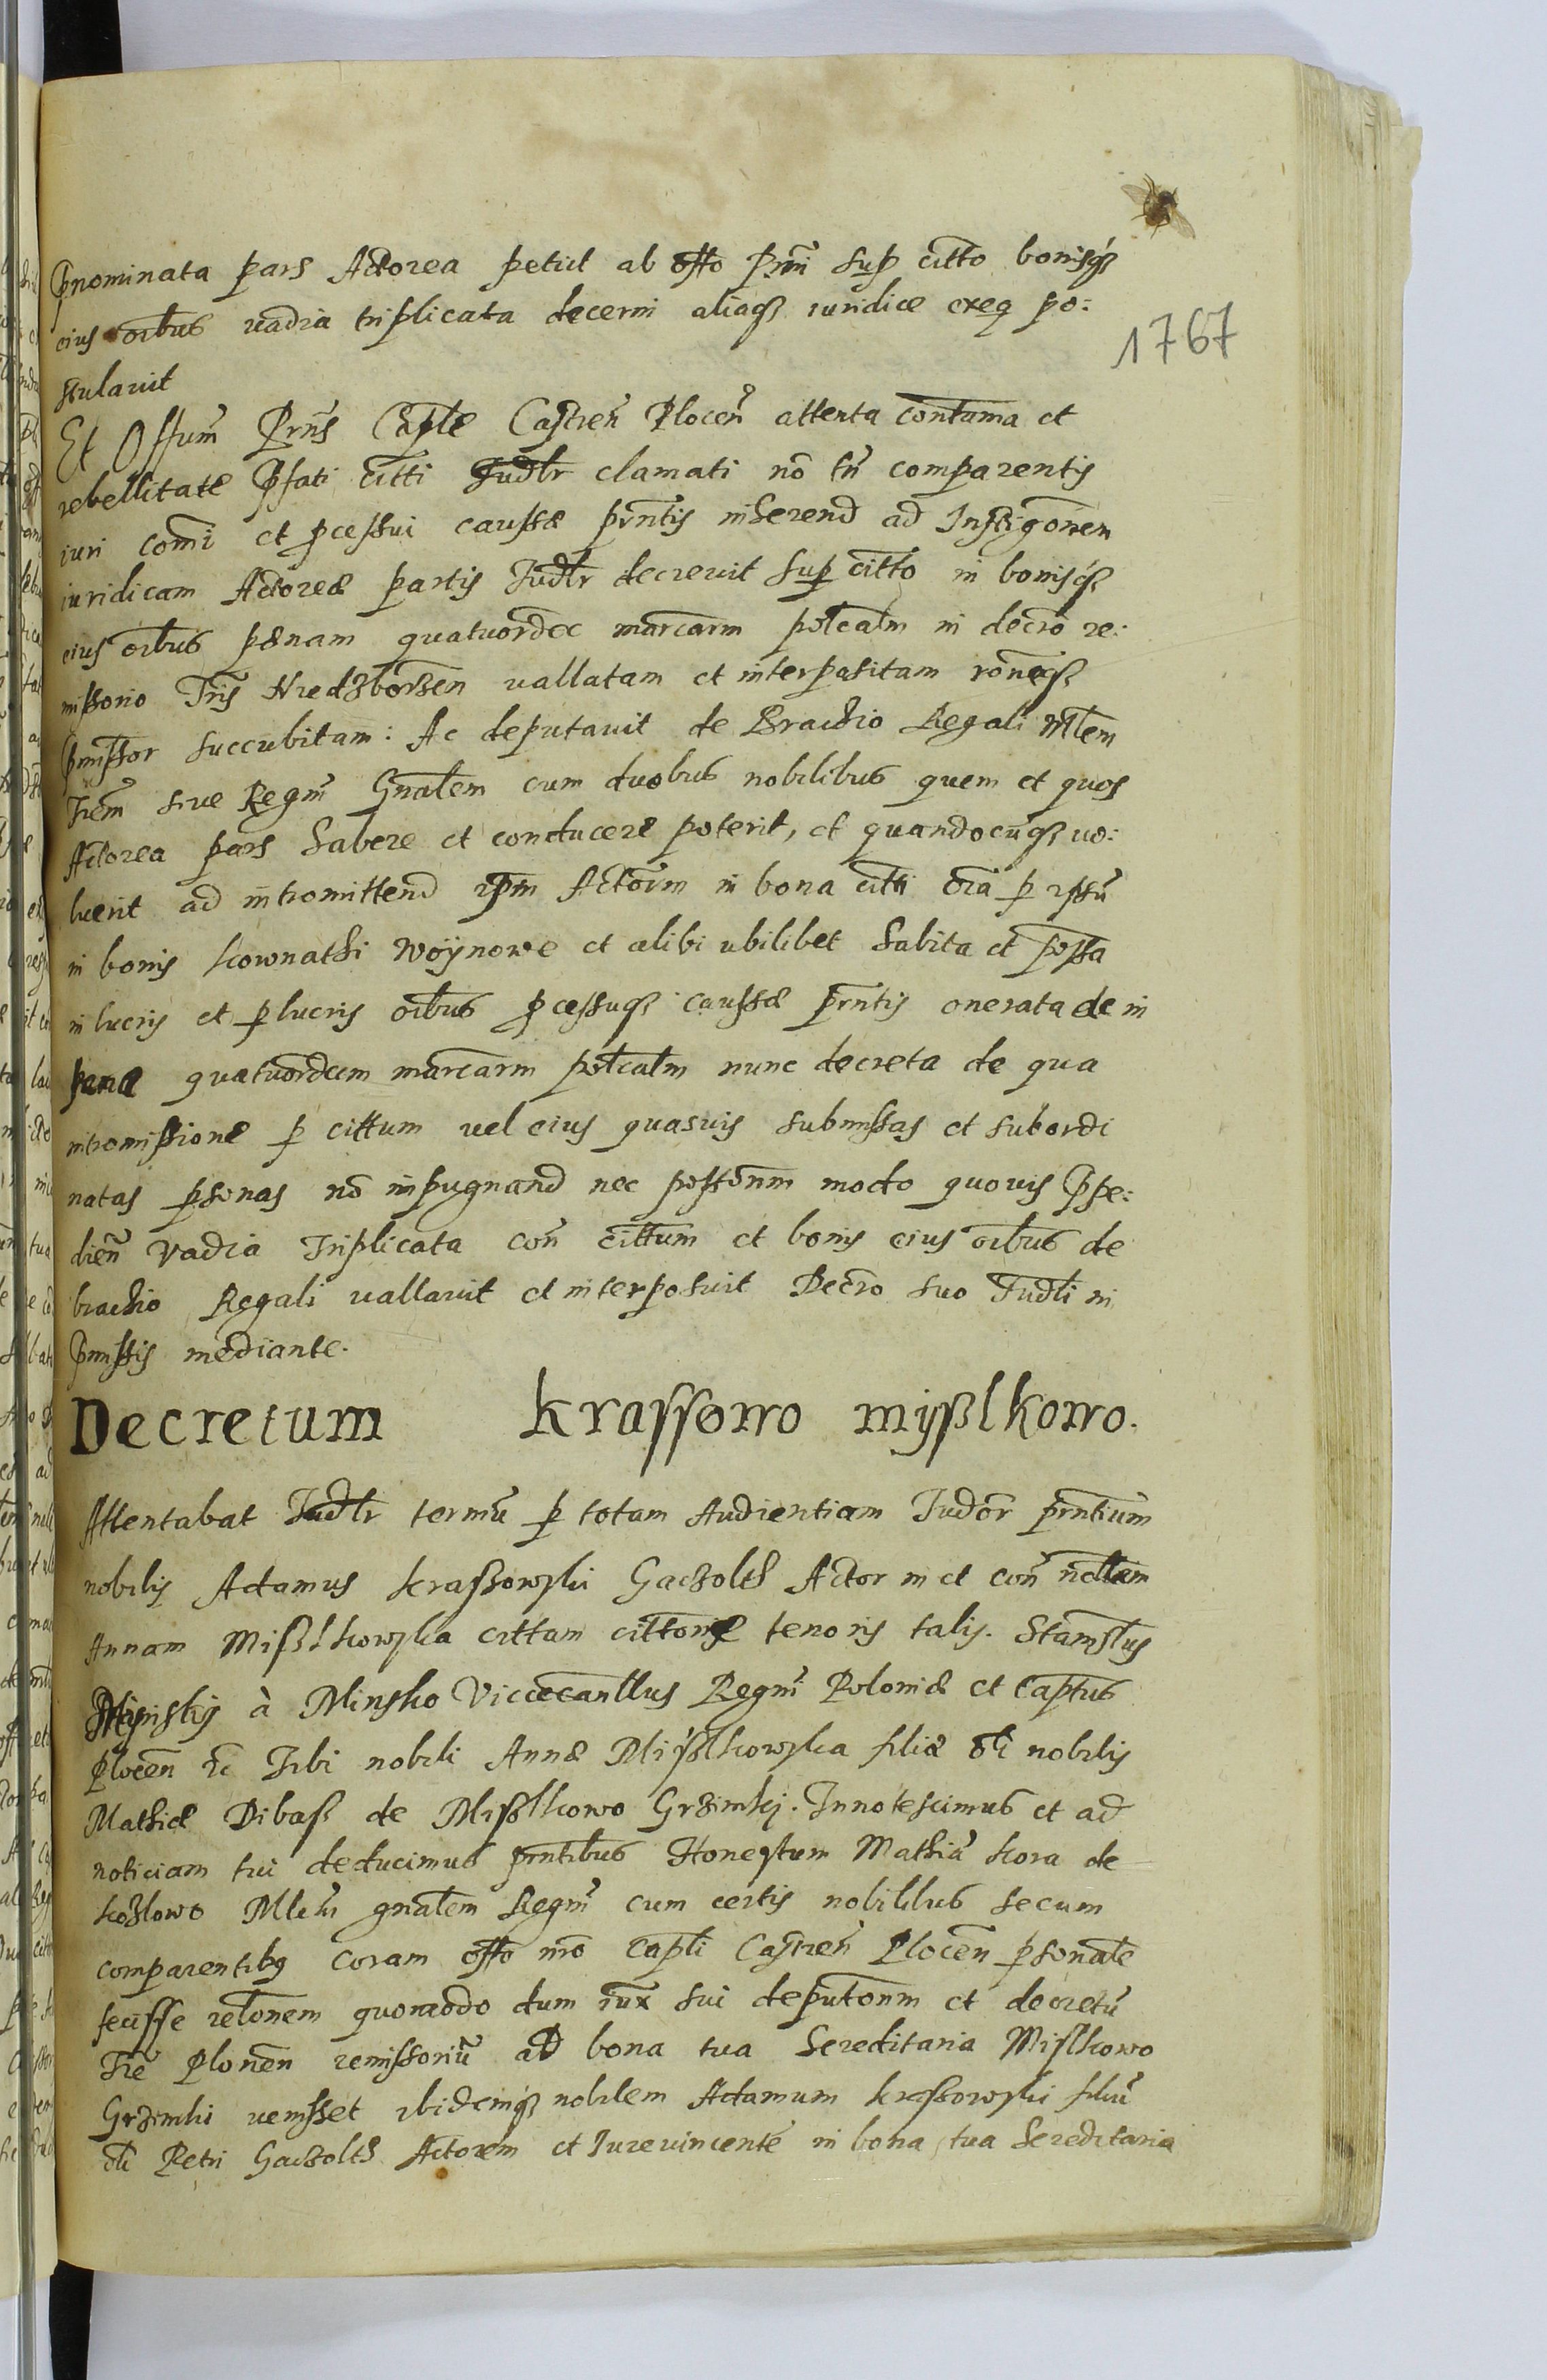 Pnominata pars Actorea petiit ab offo Pnti sup citto bonisq3
eius oibus vadia triplicata decerni aliaq3 iuridice exeq po:
stulavit
1767
Et Offum Prns Caple Castren Plocen attenta contuma et
rebellitate Pfati citti Judlr clamati nō tn comparentis
iuri comi et pcessui caussæ prntis inherend ad Instigonem
iuridicam Actoreæ partis Judlr decrevit sup citto in bonisq3
eius oibus pænam quatuordec marcarm polcalm in decro re:
missorio Tris vallatam et interpositam roneq3
pmissor succubitam: Ac deputavit de Brachio Regali Mlem
Trem sive Regni Gnalem cum duobus nobilibus quem et quos
Actorea pars habere et conducere poterit, et quandocunq3 vo:
luerit ad intromittend ipm Actorm in bona citti oia p ipsu
in bonis kownathi Woÿnowe et alibi ubilibet habita et possa
in lucris et plucris oibus pcessuq3 caussæ prntis onerata de in
pæna quatuordecim marcarm polcalm nunc decreta de qua
intromissione p cittum vel eius quasvis submissas et subordi
natas psonas nō impugnand nec possonm modo quovis Ppe:
dien vadia Triplicata con cittum et bonis eius oibus de
brachio Regali vallavit et interposuit Decro suo Judli in
pmissis mediante.
Decretum Krassowo mÿßlkowo.
Attentabat Judlr termu p totam Audientiam Judor prntium
nobilis Adamus kraßowski Gaczolth Actor in et con nobilem
Annam Mißlkowska cittam cittonis tenoris talis. Stanislus
Minskÿ à Minsko Vicecanllus Regni Poloniæ et Captus
Plocen Tibi nobili Annæ Mißlkowska filiæ oli nobilis
Mathiæ Dibaß de Mißlkowo Grzimki. Innotescimus et ad
noticiam tui deducimus prntibus Honestum Mathia kora de
kozlowo Mlem gnalem Regni cum certis nobilibus secum
comparentibg coram offo nro Capli Castren Plocen psonale
fecisse relonem quomodo dum iux sui deputonm et decretu
Tre Plonen remissoriu ad bona tua hereditaria Mislkowo
Grzimki venisset ibidemq3 nobilem Adamum kraßowski filiu
oli Petri Gaczolth Actorem et Jurevincente in bona tua hereditaria